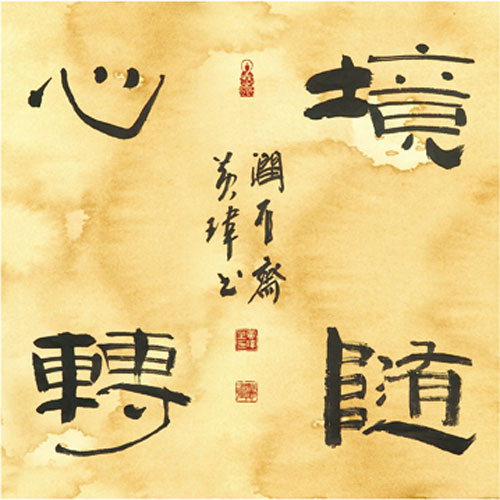 境隨
心轉
潤石齋
黃瑋書